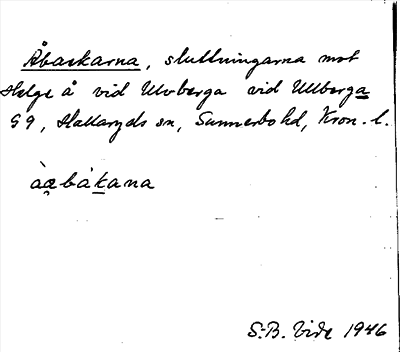 Åbackarna, sluttningarna mot
Helge å vid Ulvberga vid Ullberga
G9, Hallaryds sn, Sunnerbo hd, Kron. l.
àa̯bàkana
S.B. Vide 1946